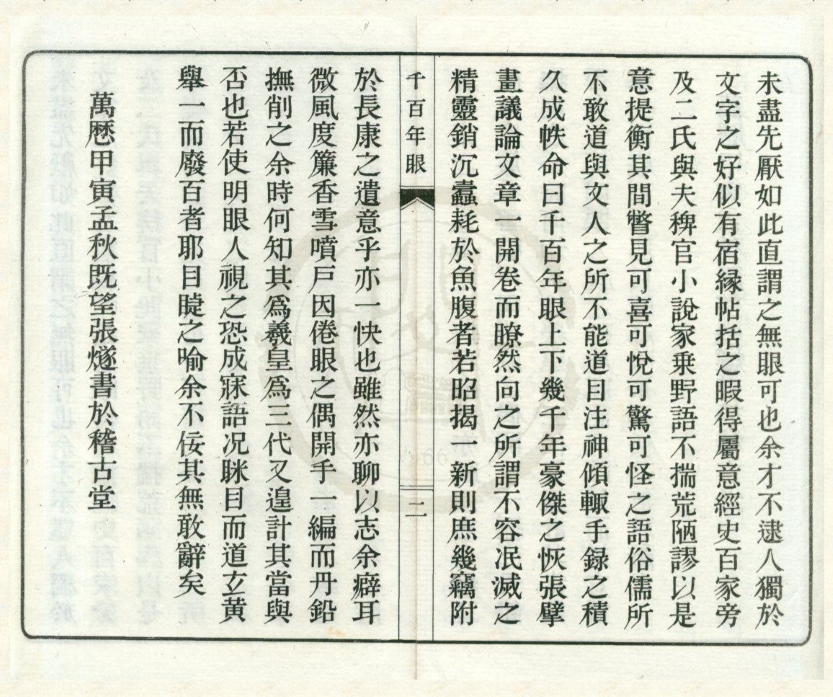 未盡先厭如此直謂之無眼可也余才不逮人獨於
文字之好似有宿緣帖括之暇得屬意經史百家旁
及二氏與夫稗官小說家乘野語不揣荒陋謬以是
意提衡其間瞥見可喜可悅可驚可怪之語俗儒所
不敢道與文人之所不能道目注神傾輙手錄之積
久成帙命曰千百年眼上下幾千年豪傑之恢張擘
畫議論文章一開卷而瞭然向之所謂不容冺滅之
精靈銷沉蠹耗於魚腹者若昭揭 新則庶幾竊附
千百年眼
二
於長康之遺意乎亦一快也雖然亦聊以志余癖耳
微風度簾香雪噴戶因倦眼之偶開手一編而丹鉛
撫削之余時何知其爲羲皇爲三代又遑計其當與
否也若使明眼人視之恐成寐語况眯目而道玄黄
舉一而廢百者耶目睫之喻余不佞其無敢辭矣
萬曆甲寅孟秋既望張燧書於稽古堂